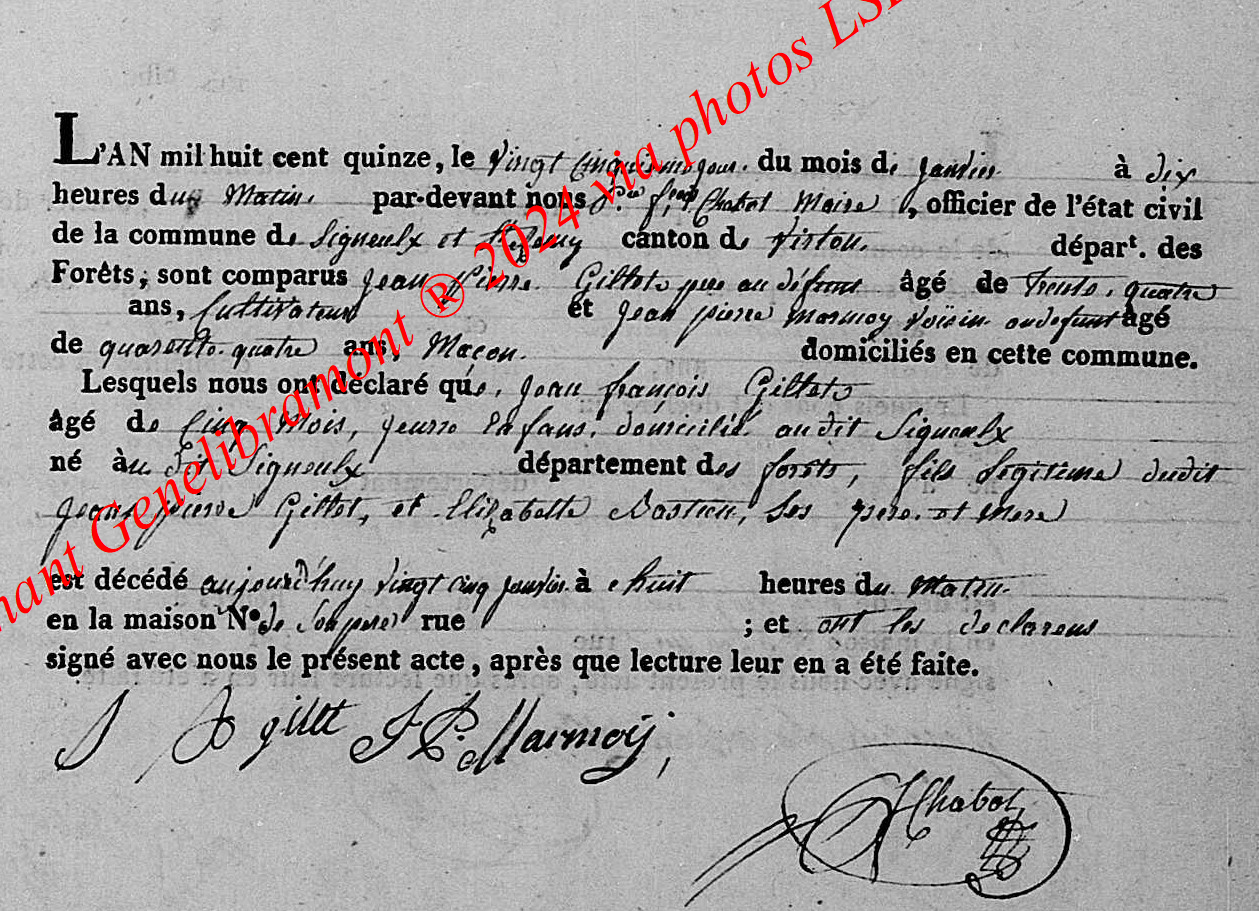 L'AN mil huit cent quinze, le vingt cinquieme jour du mois de janvier à dix
heures du Matin par-devant nous Chabot Maire, officier de l'état civil
de la commune de Signeulx et canton de Virton. départ. des
Forêts, sont comparus Jean Pierre Gillot pere au défunt âgé de trente quatre
ans, Cultivateur et Jean pierre Marmoy voisin au defunt âgé
de quarente quatre ans, Maçon. domiciliés en cette commune.
Lesquels nous ont déclaré que, Jean françois Gillot
âgé de Cinq Mois, jeune Enfans, domicilié audit Signeulx
né au dit Signeulx département des forets, fils legitime dudit
Jean pierre Gillot, et Elizabette Bastien, Ses pere et Mere
est décédé aujourd'huy vingt cinq janvier à huit heures du Matin
en la maison N.º de Son pere rue ; et ont les declarens
signé avec nous le présent acte, après que lecture leur en a été faite.
gillet J P. Marmoÿ,
Chabot
Genelibramont ® 2024 via photos